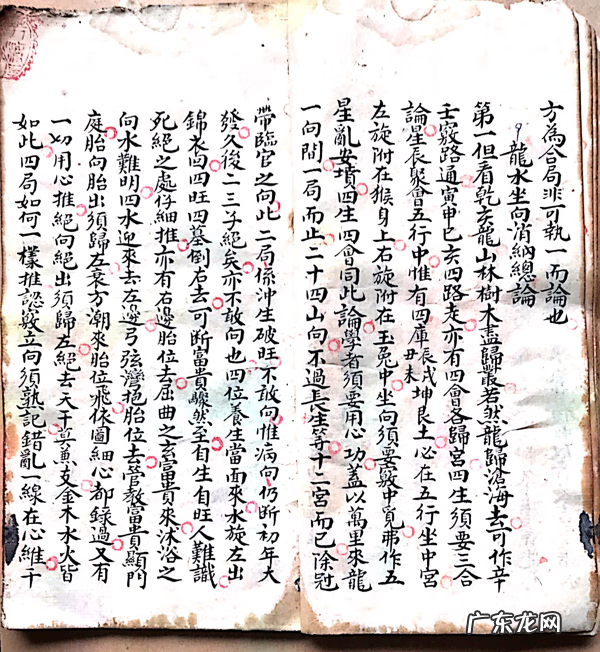 方為合局非可執一而論也
龍水坐向消納總論
第一但看乾亥龍山林樹木盡歸叢若然龍歸滄海去可作辛
壬竅路通寅申巳亥四路走亦有四會各歸宮四生須要三合
論星辰聚會五行中惟有四庫辰戌丑未坤艮土必在五行坐中宮
左旋附在猴身上右旋附在玉兔中坐向須要竅中覓弗作五
星亂安墳四生四會同此論學者須要用心功蓋以萬里來龍
一向開一局而止二十四山向不過長生等十二宮而已除冠
帶臨官之向此二局係沖生破旺不敢向惟病向仍斷初年大
發久後二三子絕矣亦不敢向也四位養生當面來水旋左出
錦衣四旺四墓倒右去可斷富貴驟然至自生自旺人難識
死絕之處仔細推亦有右邊胎位去屈曲之玄富貴來沐浴之
向水難明四水迎來去左邊弓弦灣抱胎位去管教富貴顯門
庭胎向胎出須歸左衰方潮來胎位飛依圖細心都錄過又有
一切用心推絕向絕出須歸左絕去天干莫惠支金木水火皆
如此四局如何一樣推認竅立向須熟記錯亂一線在心維干
广东龙网